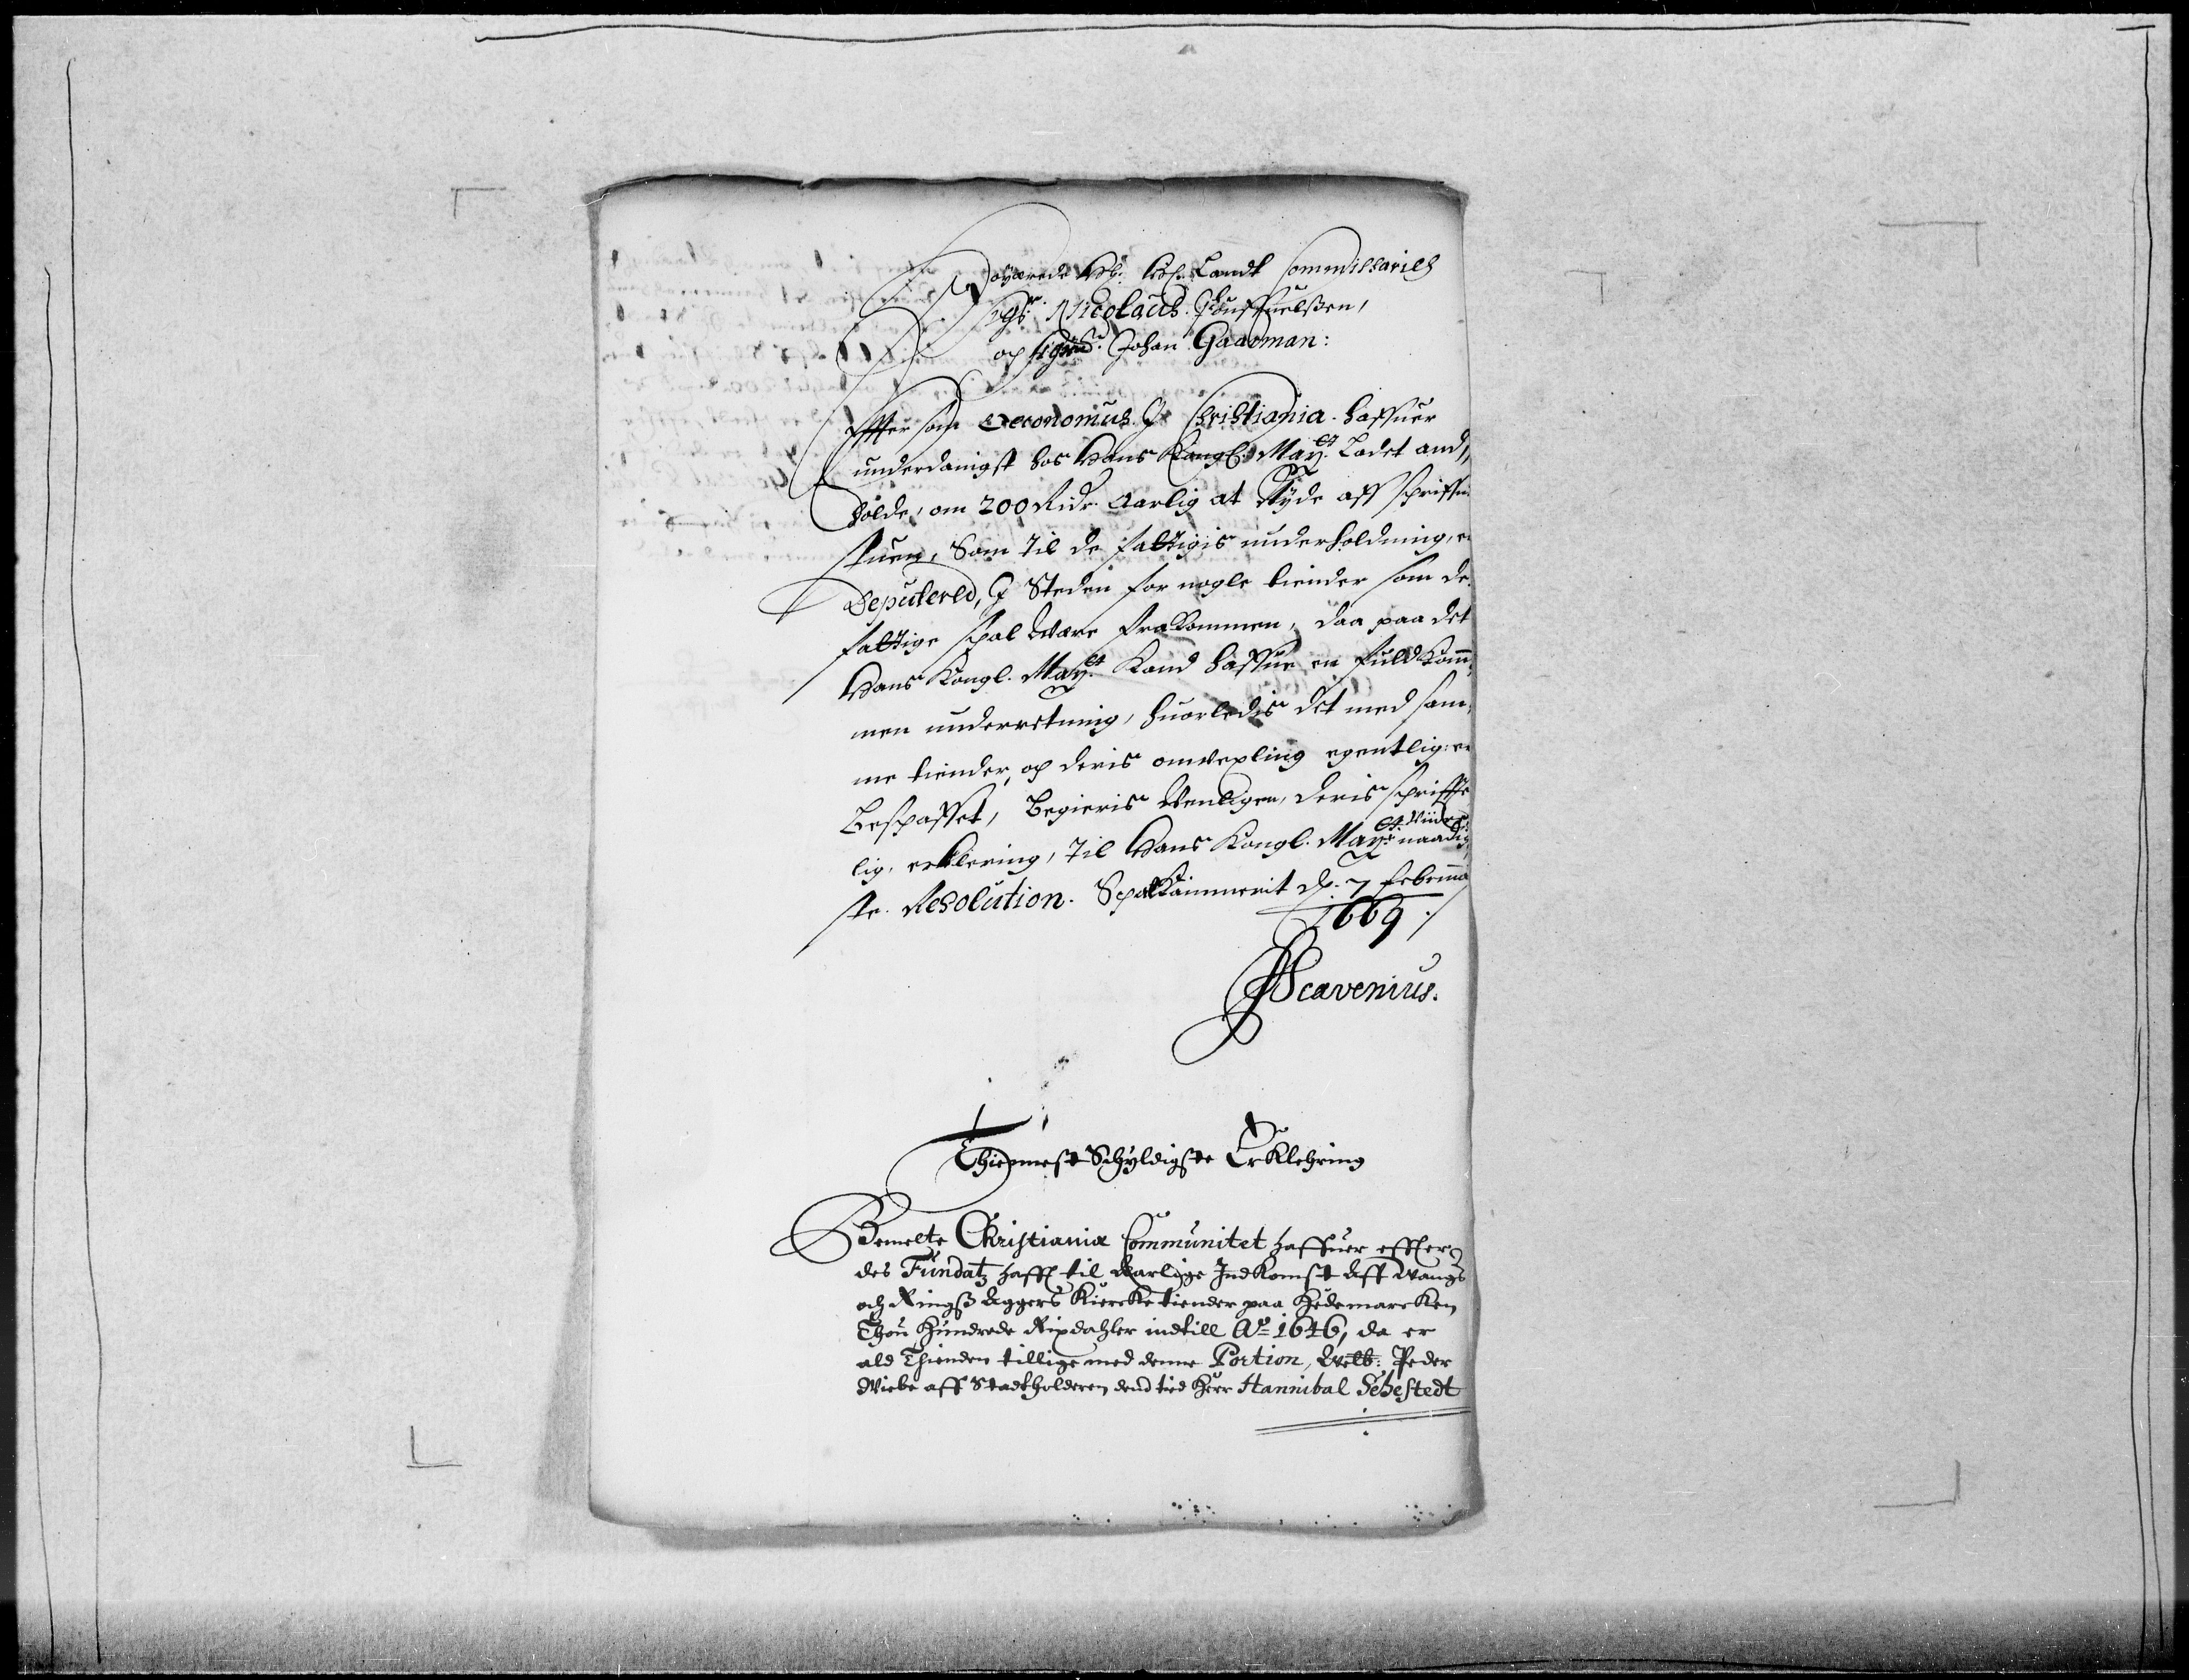 Höyærede Landt Commissarier
Sgr. Nicolaus Pouffuelssen,
och Sigr. Johan Gaarman:
Efftersom Oeconomus I Christiania haffuer
underdanigst hos Hans Kongl: May:et Ladet and,,
holde, om 200 Ridr. Aarlig at Nyde aff schriffue
stuen, Som til de fattigis underholdning, er
Deputered, I Steden for nogle tiender som de
fattige skal Være frakommen, daa paa det
Hans Kongl. May:et Kand haffue en fuldkom,
men underretning, huorledis det med sam,
me tiender, och deris omvexling egentlig er
Beskaffet, Begieris Venligen, deris schrifft
lig, erklering, til Hans Kongl. May:et Viidere naadig,
ste Resolution. Skatkammerit d. 7 Februa
1669.
PScavenius.
Thiennest Schyldigste ErKlehring
Bemelte Christiania Communitet haffuer effter
des Fundatz hafft til Aarlige IndKomst Aff Wangs
och Ringsaggers KiercKe tiender paa HedemarcKen
Thou Hundrede Rixdahler indtill Ao 1646, da er
ald Thienden tillige med denne Portion, Velb: Peder
Wiebe aff Stadtholderen dend tid Herr Hannibal Sehestedt